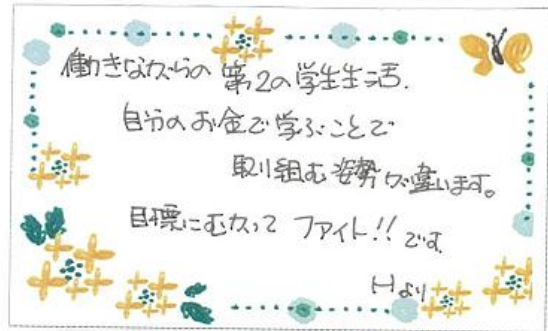 働きながらの第2の学生生活.
自分のお金で学ぶことで
取り組む姿勢が違います。
目標にむかって ファイト!! です
Hより